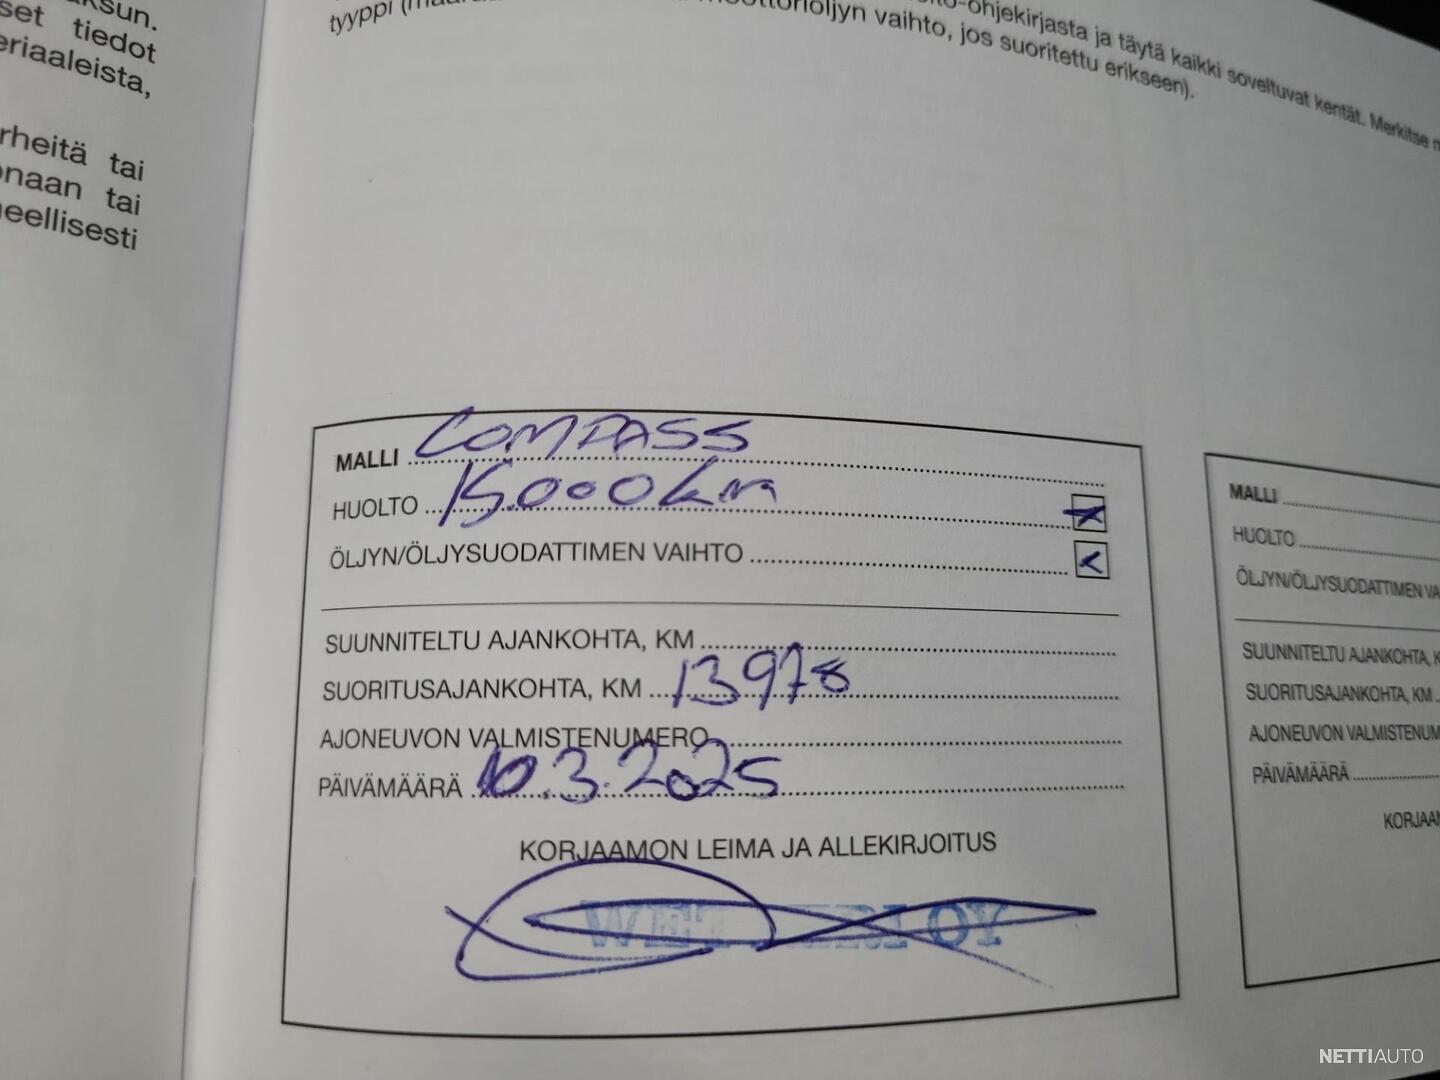 set tiedot
rheitä tai
tai
tyyppi
-ohjekirjasta ja täytä kaikki soveltuvat kentät. Merkitse
vaihto, jos suoritettu erikseen).
MALLI COMPASS
HUOLTO 15.000 km
ÖLJYN/ÖLJYSUODATTIMEN VAIHTO
SUUNNITELTU AJANKOHTA, KM
SUORITUSAJANKOHTA, KM 13978
AJONEUVON VALMISTENUMERO
PÄIVÄMÄÄRÄ 10.3.2025
KORJAAMON LEIMA JA ALLEKIRJOITUS
OY
MALLI
HUOLTO
ÖLJYN/ÖLJYSUODATTIMEN VA
SUUNNITELTU AJANKOHTA, K
SUORITUSAJANKOHTA, KM
AJONEUVON VALMISTENUM
PÄIVÄMÄÄRÄ
KORJAAM
NETTIAUTO